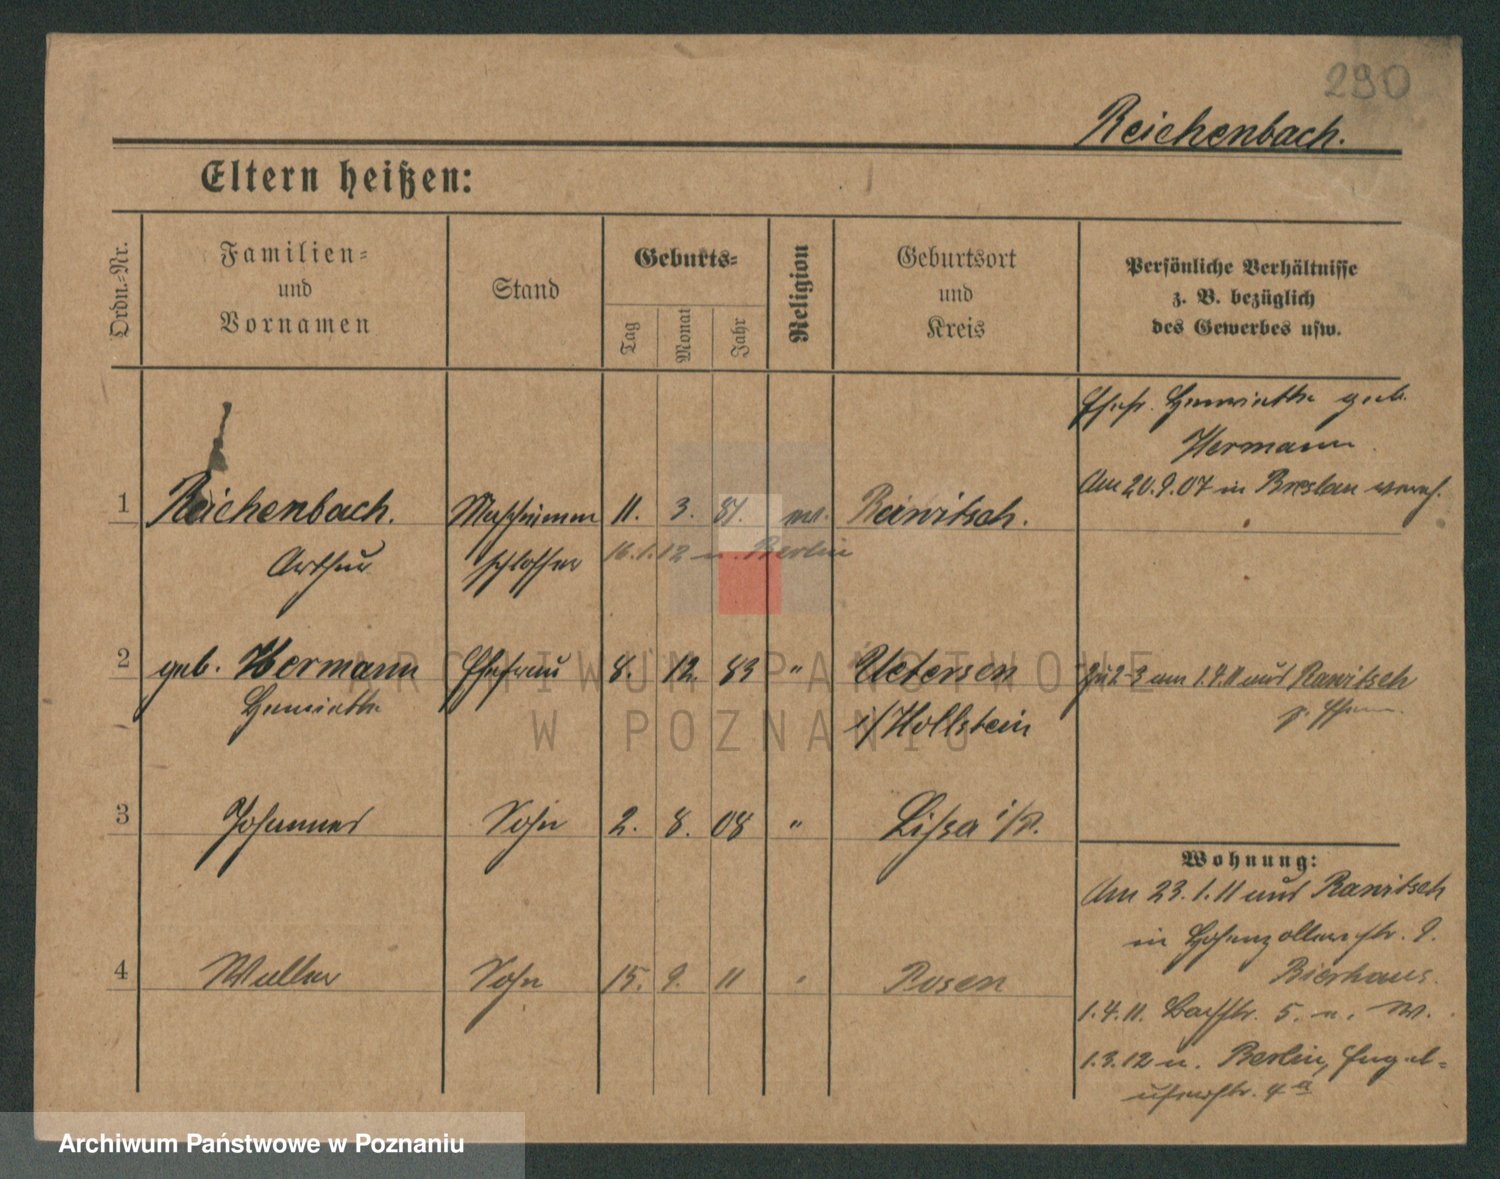 290
Reichenbach.
Eltern heißen:
Ordn.-Nr.
Familien-
und
Vornamen
Stand
Geburts-
Tag
Monat
Jahr
Religion
Geburtsort
und
Kreis
Persönliche Verhältnisse
z. B. bezüglich
des Gewerbes usw.
Ehefr. Henriette geb.
Hermann
Am 20.9.07 in Breslau verh.
1 Reichenbach. Maschinen 11. 3. 81. Rawitsch.
Arthur schlosser 16.1.12 n. Berlin
2 geb. Hermann Ehefrau 8. 12. 83 " Uetersen
Henriette i/Hollstein
zu 2-3 am 1.4.11 aus Rawitsch
z. Ehem.
3 Johannes Sohn 2. 8. 08 " Lissa i/P.
Wohnung:
Am 23.1.11 aus Rawitsch
in Hohenzollernstr. 9.
Bierhaus.
4 Walter Sohn 15. 9. 11 " Posen
1.4.11. Bachstr. 5. n. W.
1.3.12 n. Berlin, Engel-
uferstr. 4a
ARCHIWUM PAŃSTWOWE
W POZNANIU
Archiwum Państwowe w Poznaniu